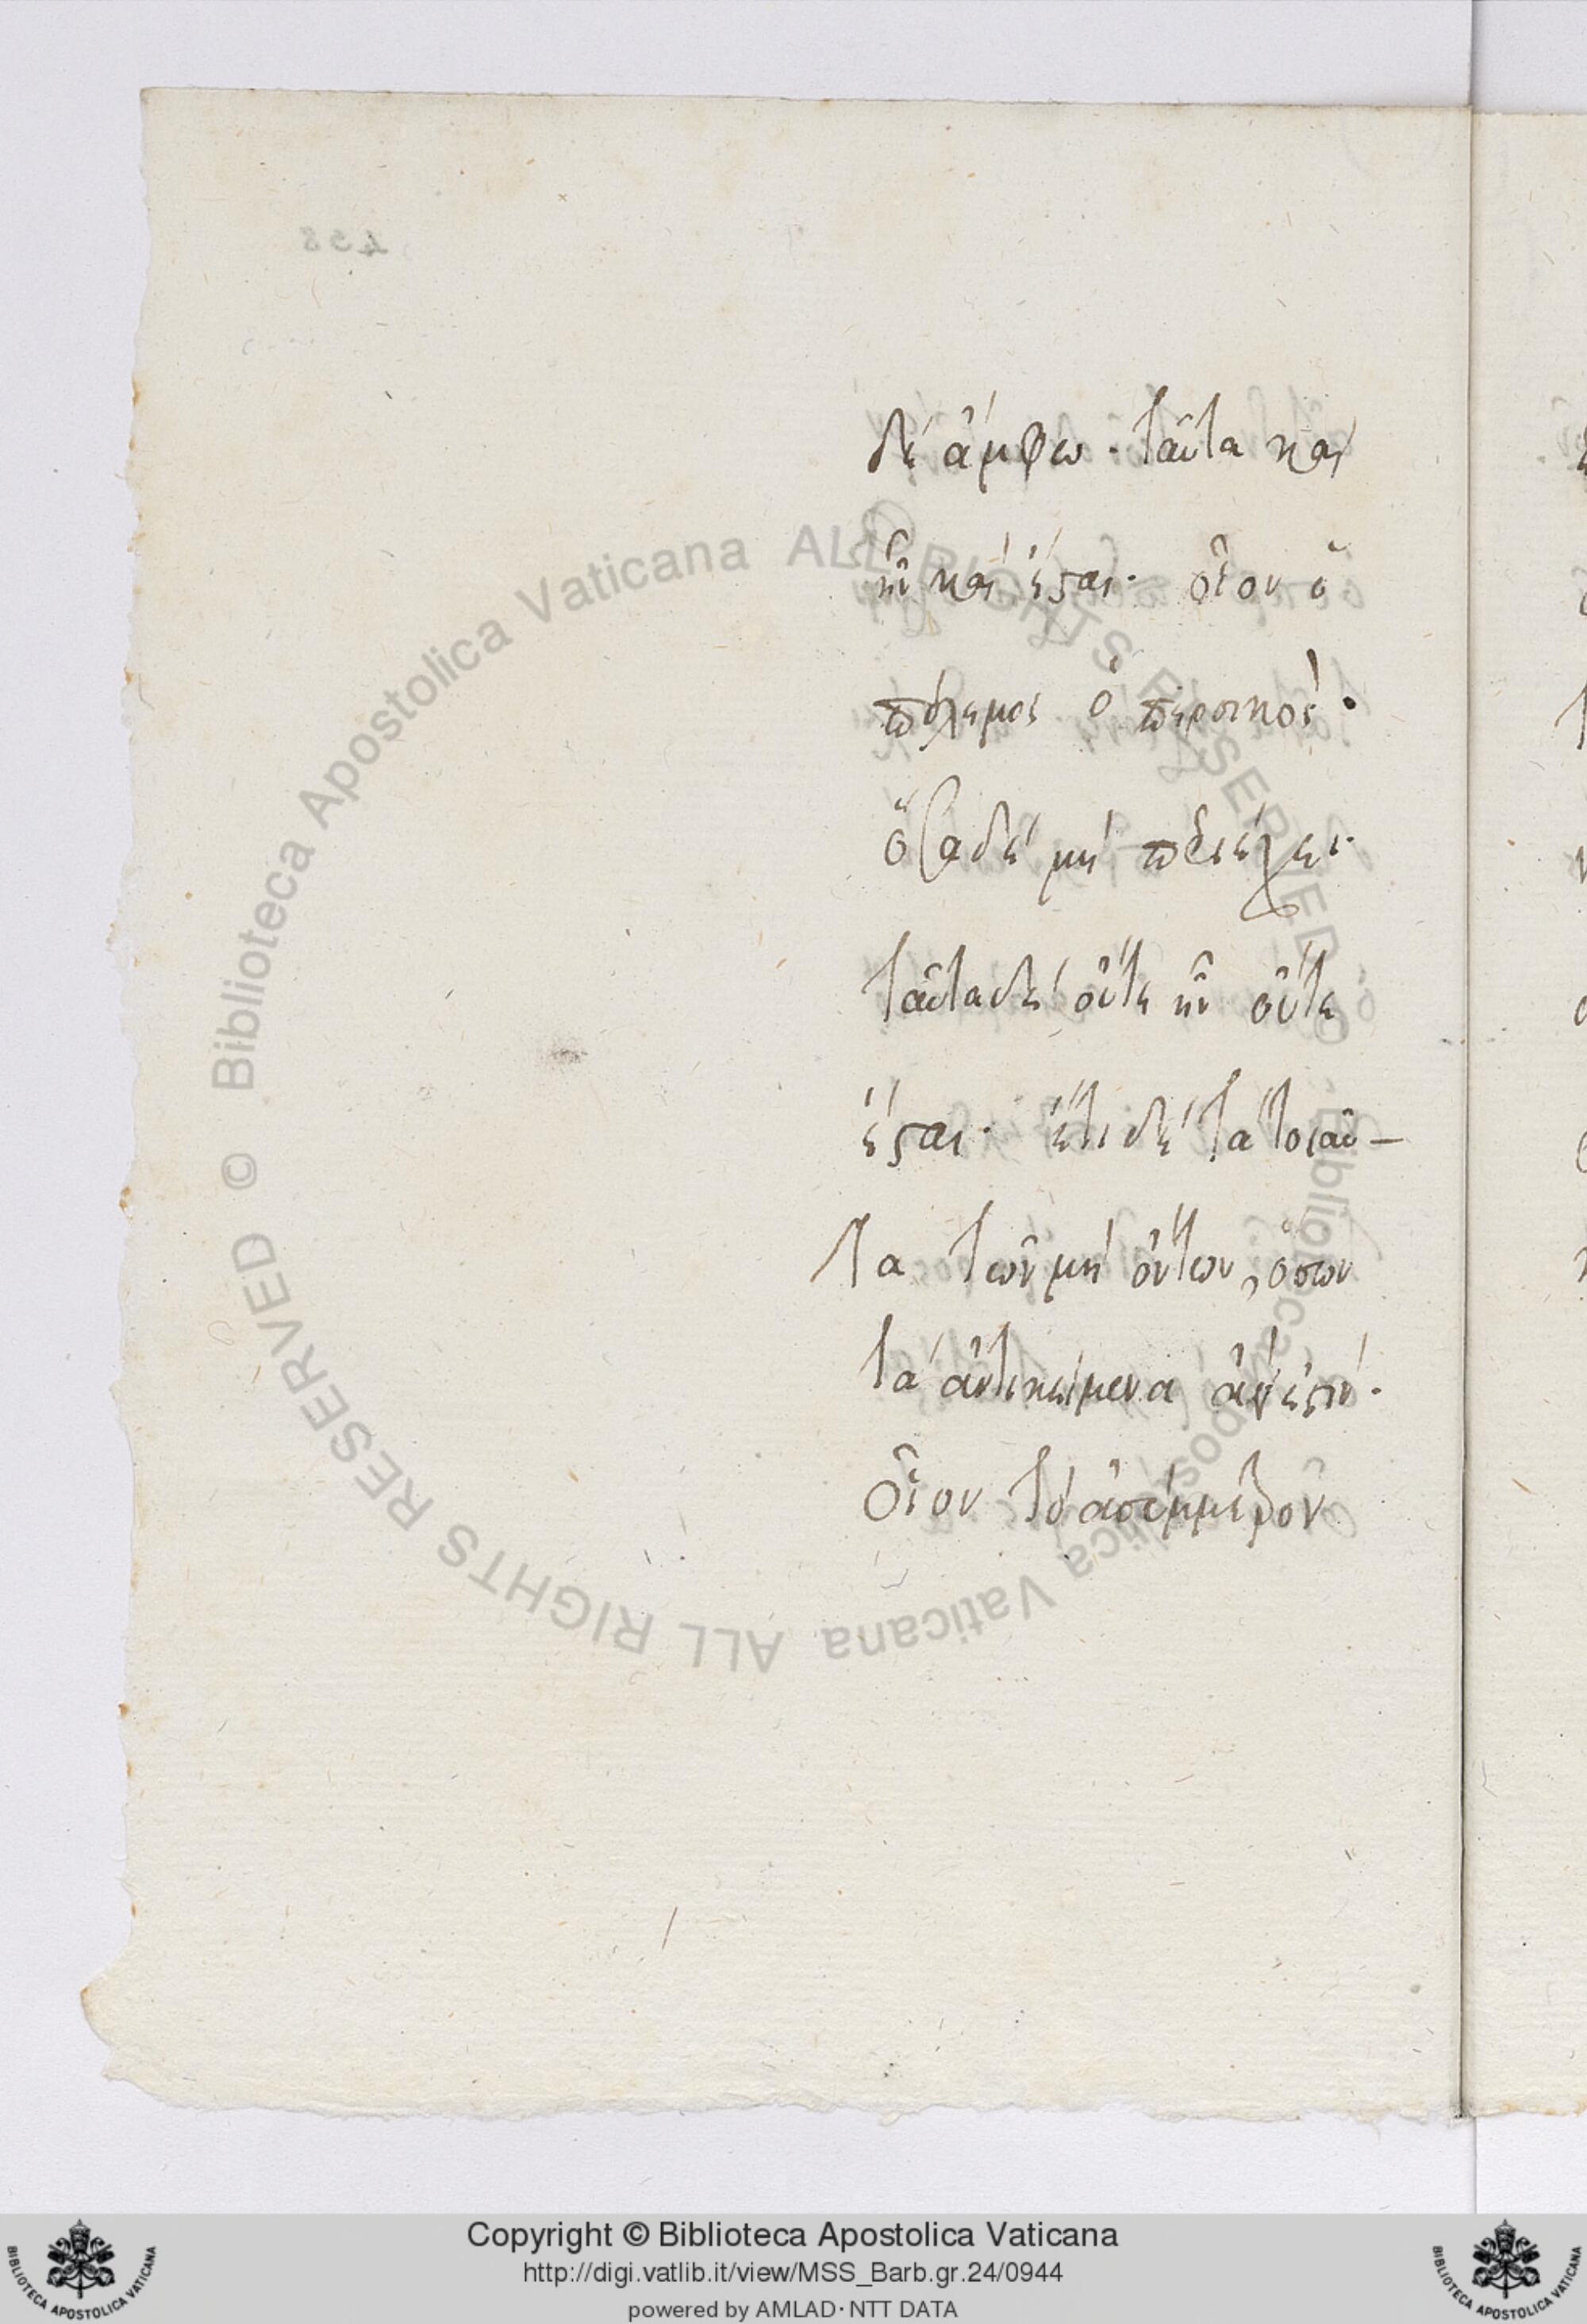 458
δὲ ἄμφω· ταῦτα καὶ
ἦν καὶ ἔσται· οἷον ὁ
πόλεμος ὁ περσικός·
ὅσα δὲ μὴ περιέχει·
ταῦτα δὲ οὔτε ἦν οὔτε
ἔσται· ἔτι δὲ τὰ τοιαῦ-
τα τῶν μὴ ὄντων, ὅσων
τὰ ἀντικείμενα ἀεὶ ἐστίν·
οἷον τὸ ἀσύμμετρον
© Biblioteca Apostolica Vaticana ALL RIGHTS RESERVED
© Biblioteca Apostolica Vaticana ALL RIGHTS RESERVED
Copyright © Biblioteca Apostolica Vaticana
http://digi.vatlib.it/view/MSS_Barb.gr.24/0944
powered by AMLAD·NTT DATA
BIBLIOTECA APOSTOLICA VATICANA
BIBLIOTECA APOSTOLICA VATICANA